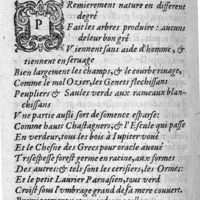 PRemierement nature en different
degré
Fait les arbres produire: aucuns
de leur bon gré
Viennent sans aide d'homme, &
tiennent en seruage
Bien largement les champs, & le courbe riuage,
Comme le mol Ozier, les Genets flechissans
Peupliers & Saules verds aux rameaux blan-
chissans
Vne partie aussi sors de semence esparse:
Comme hauts Chastagners, & l'Escule qui passe
En verdeur, tous les bois à Iupiter voué
Et le Chesne des Grecs pour oracle auoué
Tresespesse forest germe en racine, aux formes
Des autres: & tels sont les cerisiers, les Ormes:
Et le petit Laurier Parnasien, tout verd
Croist sous l'vmbrage grand de sa mere couuert.